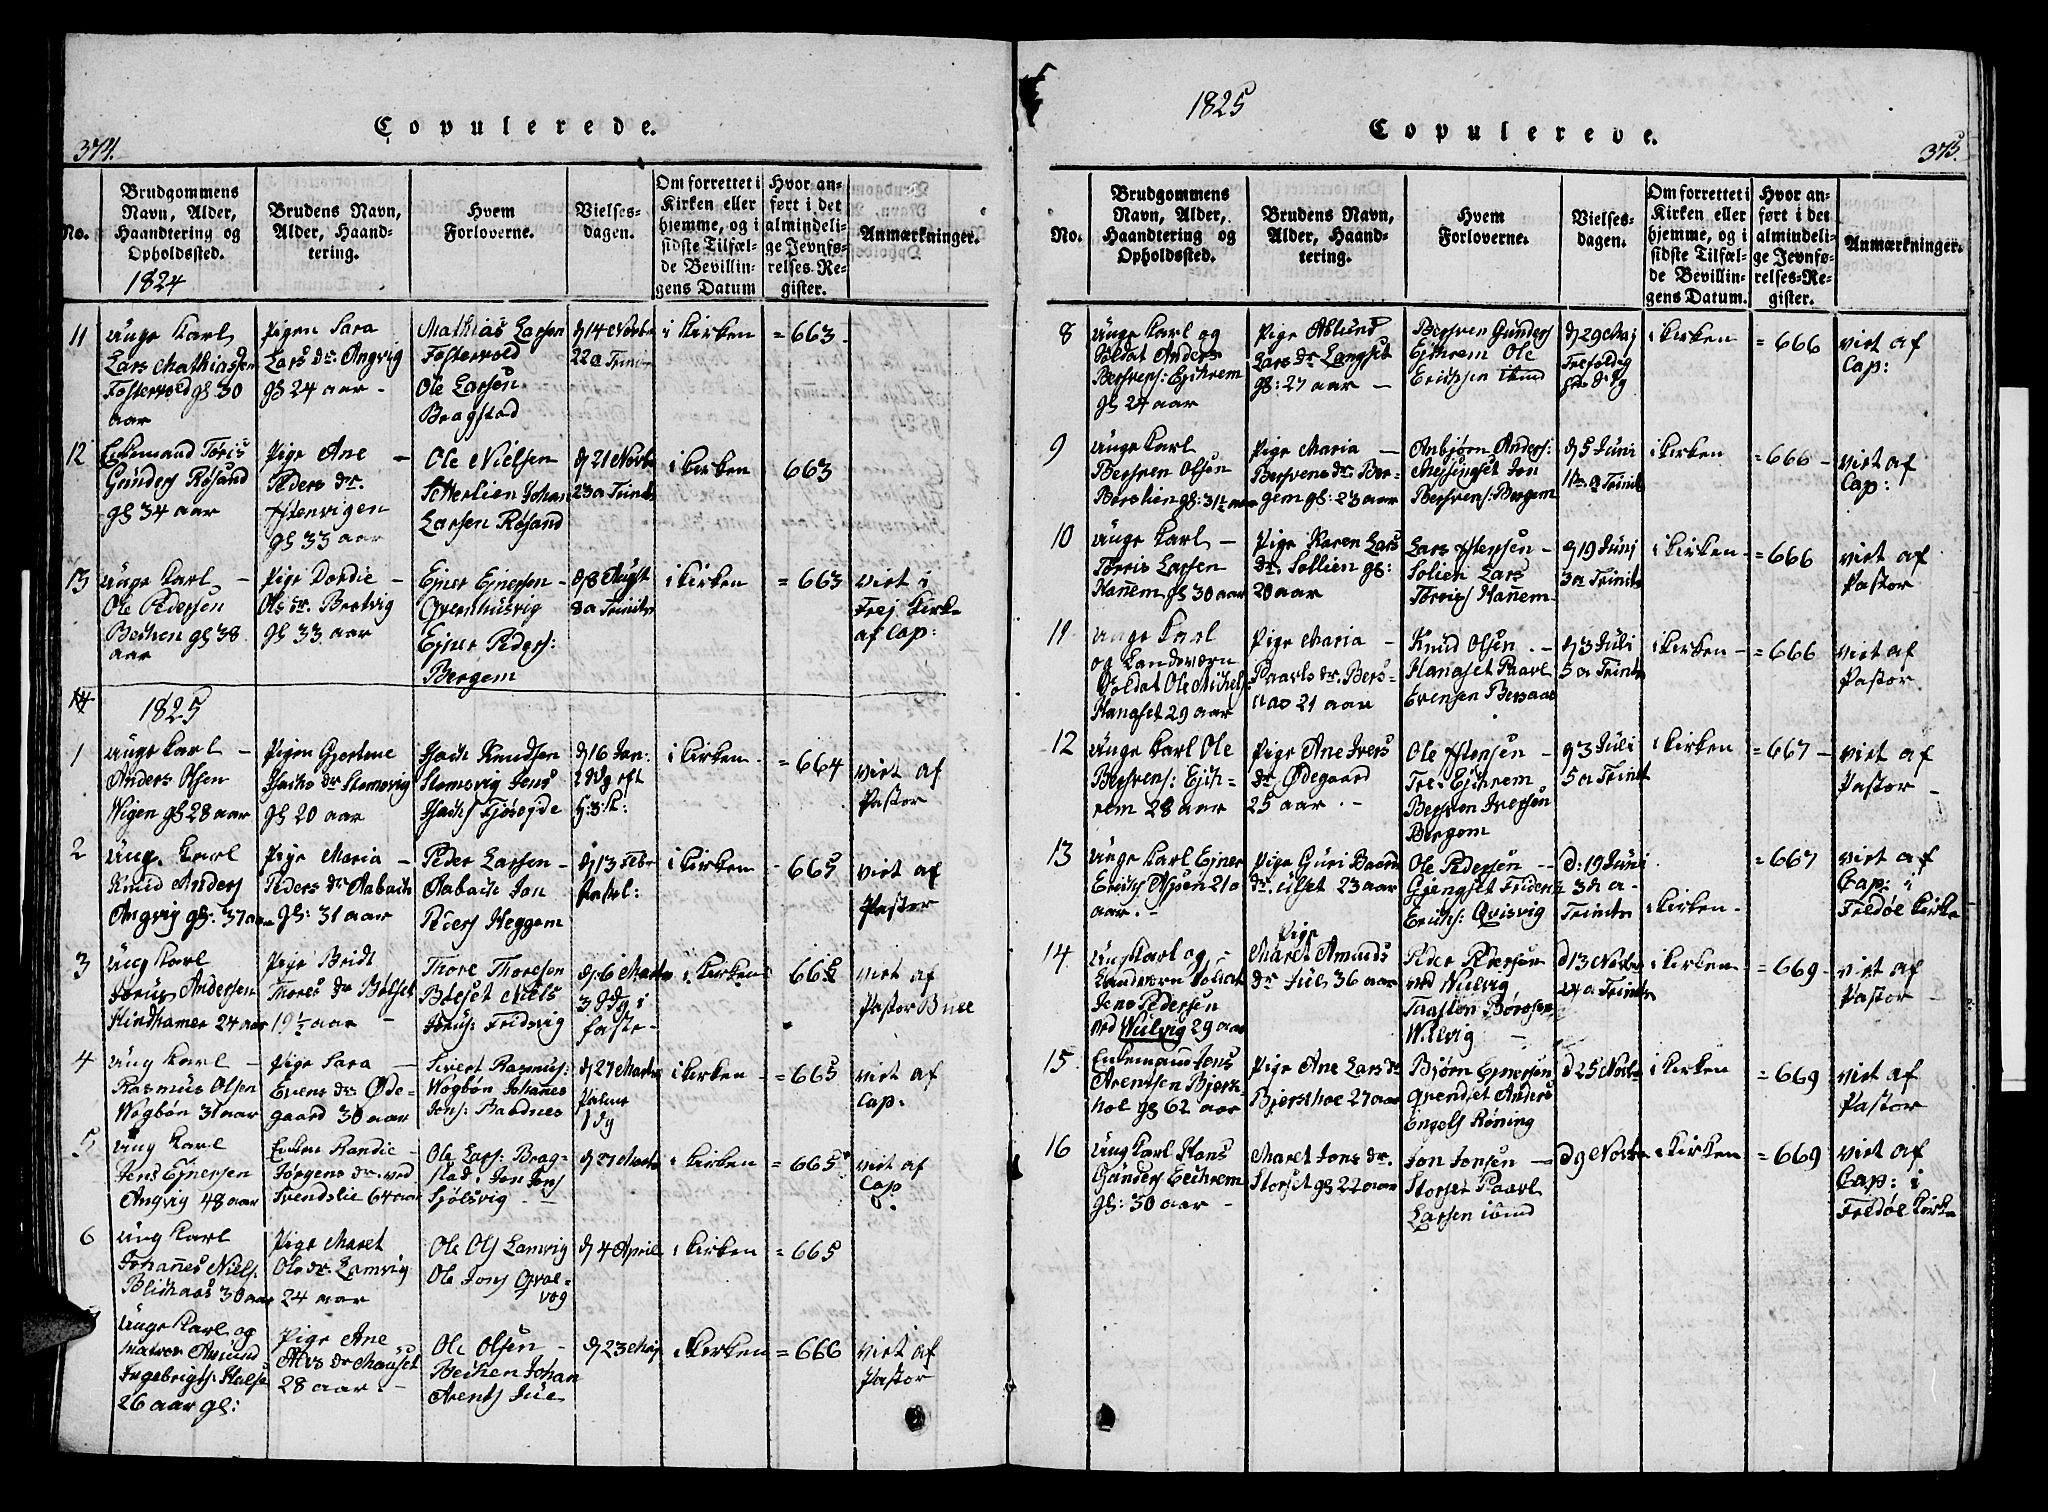 374.
Copulerede.
No.
Brudgommens
Navn, Alder,
Haandtering og
Opholdssted.
1824
Brudens Navn,
Alder, Haand-
tering.
Hvem
Forloverne.
Vielses-
dagen.
Om forrettet i
Kirken eller
hjemme, og i
sidste Tilfæl-
de Bevillin-
gens Datum
Hvor an-
ført i det
almindeli-
ge Jevnfø-
relses-Re-
gister.
Anmærkninger.
11
unge Karl
Lars Mathiassen
Fostervold gl 30
aar
Pigen Sara
Lars dr. Angvig
gl 24 aar -
Mathias Larsen
Fostervold
Ole Larsen
Bragstad
d 14 Novbr
22 a Trinit
i Kirken
= 663 -
12
Enkemand Tøris
Gunders Røsand
gl 34 aar
Pige Ane -
Peders dr.
Estenvigen
gl 33 aar
Ole Nielsen
Setterlien Johan
Larsen Røsand
d 21 Novbr
23 a Trinit
i Kirken
663
13
unge Karl -
Ole Pedersen
Bechen gl 38
aar
Pige Dordie -
Ols dr. Bretvig
gl 33 aar
Ejner Ejnersen -
Qvenhusvig
Ejner Peders:
Bergem
d 8 August
8 a Trinit
i Kirken
= 663
viet i
Frej Kirke
af Cap:
14
1825
1
unge Karl -
Anders Olsen
Vigen gl 28 aar
Pigen Gjertine
Isachs dr Stomsvig
gl 20 aar
Isach Knudsen
Stomsvig Jens
Isachs Fjøseide
d 16 Jan:
2 Sdg eft
H: 3 K:
i Kirken -
= 664
viet af
Pastor
2
Ung. Karl
Knud Anders
Angvig gl: 37 aar
Pige Maria -
Peders dr Aabach
gl: 31 aar
Peder Larsen -
Aabach Jon
Peders Heggem
d 13 Febr
Fastel:
i Kirken
= 665
viet af
Pastor
3
Ung Karl
Jorus Andersen
Hindhamer 24 aar
Pige Bridt
Thores dr Bølset
19 ½ aar -
Thore Thoresen
Bølset Niels
Jorus: Fridsvig
d 6 Marts
3 Sdg i
faste -
i Kirken
665
viet af
Pastor Bull
4
Ung Karl -
Rasmus Olsen
Vogbøn 31 aar
Pige Sara -
Evens dr Øde-
gaard 30 aar
Sivert Rasmus:
Vogbøn Johanes
Jens: Baldnes
d 27 Marts
Palme
Sdg
i Kirken -
= 665
viet af
Cap:
5
Ung Karl
Jens Ejnersen
Angvig 48 aar
Enken Randie -
Jørgens dr. ved
Trendslie 64 aar
Ole Lars: Brag-
stad, Jon Jons
Sjølsvig -
d 27 Marts
i Kirken
= 665
viet af
Cap.
6
Ung Karl
Johannes Niels:
Blichaas 30 aar
Pige Maret
Ole dr. Lamvig
24 aar
Ole Ols Lamvig
Ole Jons Qval-
vog
d 4 April
i Kirken
= 665
Unge Karl og
Matros Amund
Ingebrigts: Halse
26 aar gl:
Pige Ane
Alvs dr Mauset
28 aar -
Ole Olsen -
Bechen Johan
Arents Jul
d 23 Maj
i Kirken
= 666
viet af
Pastor
1825
Copulerede.
375.
No.
Brudgommens
Navn, Alder,
Haandtering og
Opholdssted.
Brudens Navn,
Alder, Haand-
tering.
Hvem
Forloverne.
Vielses-
dagen.
Om forrettet i
Kirken eller
hjemme, og i
sidste Tilfæl-
de Bevillin-
gens Datum.
Hvor an-
ført i det
almindeli-
ge Jevnfø-
relses-Re-
gister.
Anmærkninger.
8
unge Karl og
Soldat Anders
Bersvens: Ejchrem
gl 24 aar
Pige Aslund
Lars dr Langset
gl: 27 aar -
Bersven Gunders
Ejchrem Ole
Erichsen ibid
d 29 Maj
Trefoldig
heds dg
i Kirken
= 666
viet af
Cap:
9
unge Karl
Bersven Olsen
Berslien gl: 31½ aar
Pige Maria -
Bersvens dr. Ber-
gem gl: 23 aar
Anbjørn Anders:
Messingset Jon
Bersvens: Bergem
d 5 Juni
1ste a Trinit
i Kirken
= 666 -
viet af
Cap:
10
unge Karl -
Tørris Larsen
Hanem gl 30 aar
Pige Karen Lars
dr. Sollien gl:
20 aar
Lars Estensen -
Solien Lars
Torris Hanem
d 19 Junj
3 a Trinit
i Kirken
= 666
viet af
Pastor
11
Unge Karl
og Landværn
Soldat Ole Michels:
Hangset 29 aar
Pige Maria -
Paavls dr. Bers-
aas 21 aar
Knud Olsen -
Hangset Paavl
Evensen Bersaas
d 3 Juli
5 a Trinit
i Kirken -
= 666
viet af
Pastor
12
Unge Karl Ole
Bersvens: Ejch-
rem 28 aar
Pige Ane Ivers
dr. Ødegaard
25 aar -
Ole Estensen -
Tre- Ejchrem
Bersven Iversen
Bergem
d 3 Juli
5 a Trinit
i Kirken
= 667 -
viet af
Pastor -
13
Unge Karl Ejner
Erichs Aasen 21
aar. -
Pige Guri Baard
dr. Ulset 23 aar
Ole Pedersen -
Gjengset Frider:
Erichs: Qvisvig
d: 19 Juni
3de a-
Trinit
i Kirken -
= 667
viet af
Cap: i
Fredøe Kirke
14
Ung Karl og -
Landværn Soldat
Jens Pedersen
ved Wulvig 29 aar
Pige
Maret Amunds
dr Jul 36 aar
Peder Pedersen
ved Wulvig
Torsten Børgsen
Wulvig -
d 13 Novbr
24 a Trinit
i Kirken
= 669 -
viet af
Pastor -
15
Enkemand Jens
Arentsen Bjerk-
hol gl 62 aar
Pige Ane Lars dr
Bjerkhoe 27 aar
Bjørn Ejnersen
Qvendset Anders
Engels Røning
d 25 Novbr
i Kirken
= 669
viet af
Pastor
16
Ung Karl Hans
Gunders Eechrem
gl: 30 aar -
Maret Jons dr.
Storset gl 22 aar
Jon Jonsen -
Storset Paavl
Larsen ibid
d 9 Novbr
i Kirken
= 669
viet af
Cap: i
Fredøe Kirke